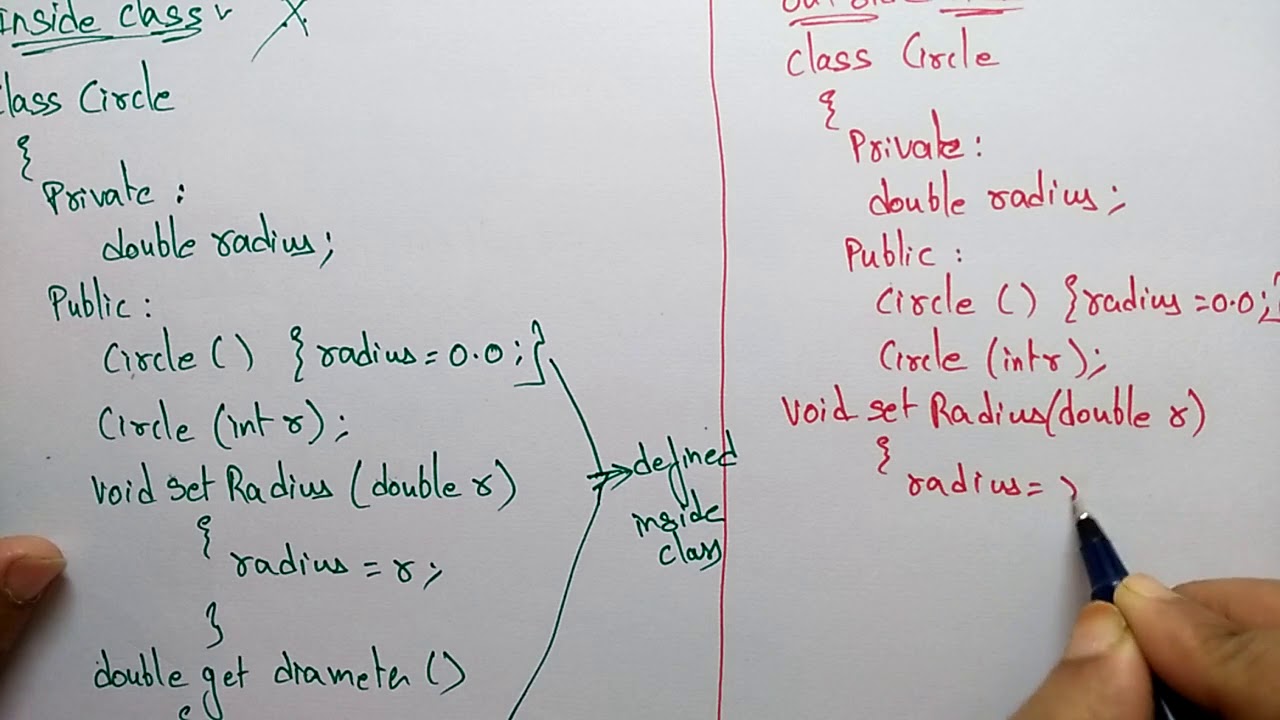 Inside class
class Circle
{
Private :
double radius;
Public :
Circle ( ) { radius = 0.0 ; }
Circle (int r) ;
void set Radius (double r)
{
radius = r ;
}
double get diameter ( )
{
defined
inside
class
class Circle
{
Private :
double radius ;
Public :
Circle ( ) {radius = 0.0 ; }
Circle (int r) ;
void set Radius (double r)
{
radius =